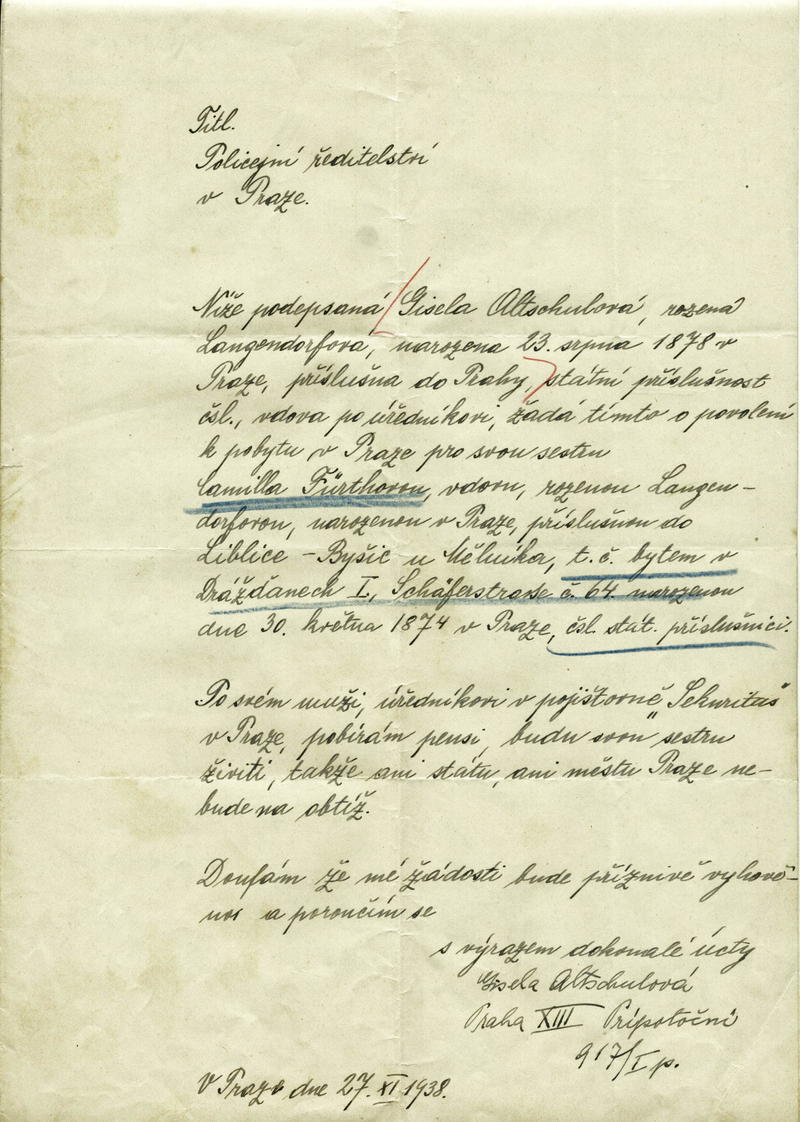 Titl.
Policejní ředitelství
v Praze.
Níže podepsaná Gisela Altschulová, rozená
Langendorfová, narozena 23. srpna 1878 v
Praze, příslušna do Prahy, státní příslušnost
čsl., vdova po úředníkovi, žádá tímto o povolení
k pobytu v Praze pro svou sestru
Camilla Fürthovou, vdovu, rozenou Langen-
dorfovou, narozenou v Praze, příslušnou do
Liblice - Byšic u Mělníka, t. č. bytem v
Drážďanech I, Schäferstrasse č. 64. narozenou
dne 30. května 1874 v Praze, čsl. stát. příslušnici.
Po svém muži, úředníkovi v pojištovně "Sekuritas"
v Praze, pobírám pensi, budu svou sestru
živiti, takže ani státu, ani městu Praze ne-
bude na obtíž.
Doufám že mé žádosti bude příznivě vyhově-
no a poroučím se
s výrazem dokonalé úcty
Gisela Altschulová
Praha XIII Přípotoční
917/I p.
V Praze dne 27. XI 1938.